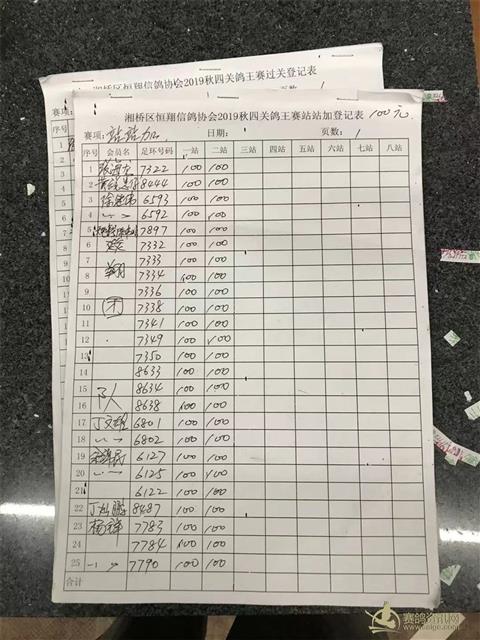 湘桥区恒翔信鸽协会2019秋四关鸽王赛过关登记表
页数: 1
湘桥区恒翔信鸽协会2019秋四关鸽王赛站站加登记表 100元
赛项: 站站加 日期: 页数: 1
序号 会员名 足环号码 一站 二站 三站 四站 五站 六站 七站 八站
1 7322 100 100
2 8444 100 100
3 6593 100 100
4 〃 6592 100 100
5 7897 100 100
6 7332 100 100
7 7333 100 100
8 翔 7334 100 100
9 7336 100 100
10 团 7338 100 100
11 7341 100 100
12 7349 100 100
13 7350 100 100
14 8633 100 100
15 8634 100 100
16 8638 100 100
17 6801 100 100
18 〃 6802 100 100
19 6127 100 100
20 〃 6125 100 100
21 6122 100 100
22 8487 100 100
23 7783 100 100
24 7784 100 100
25 〃 7790 100 100
合计
赛鸽资讯网